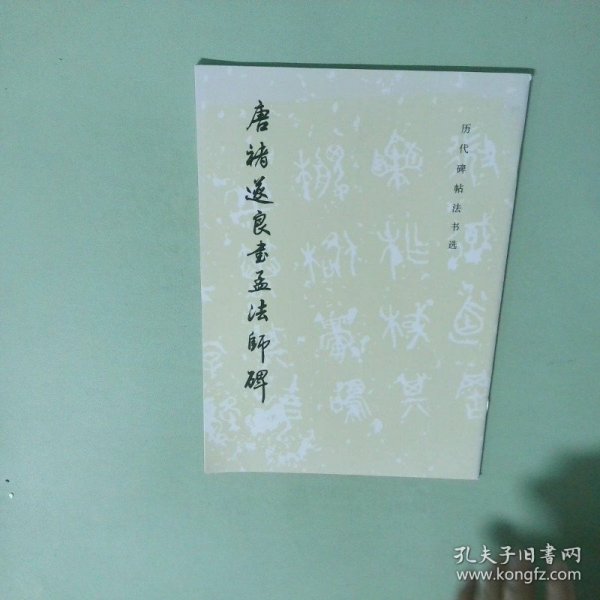 历代碑帖法书选
唐褚遂良书孟法師碑
孔夫子旧書网
www.kongfz.com